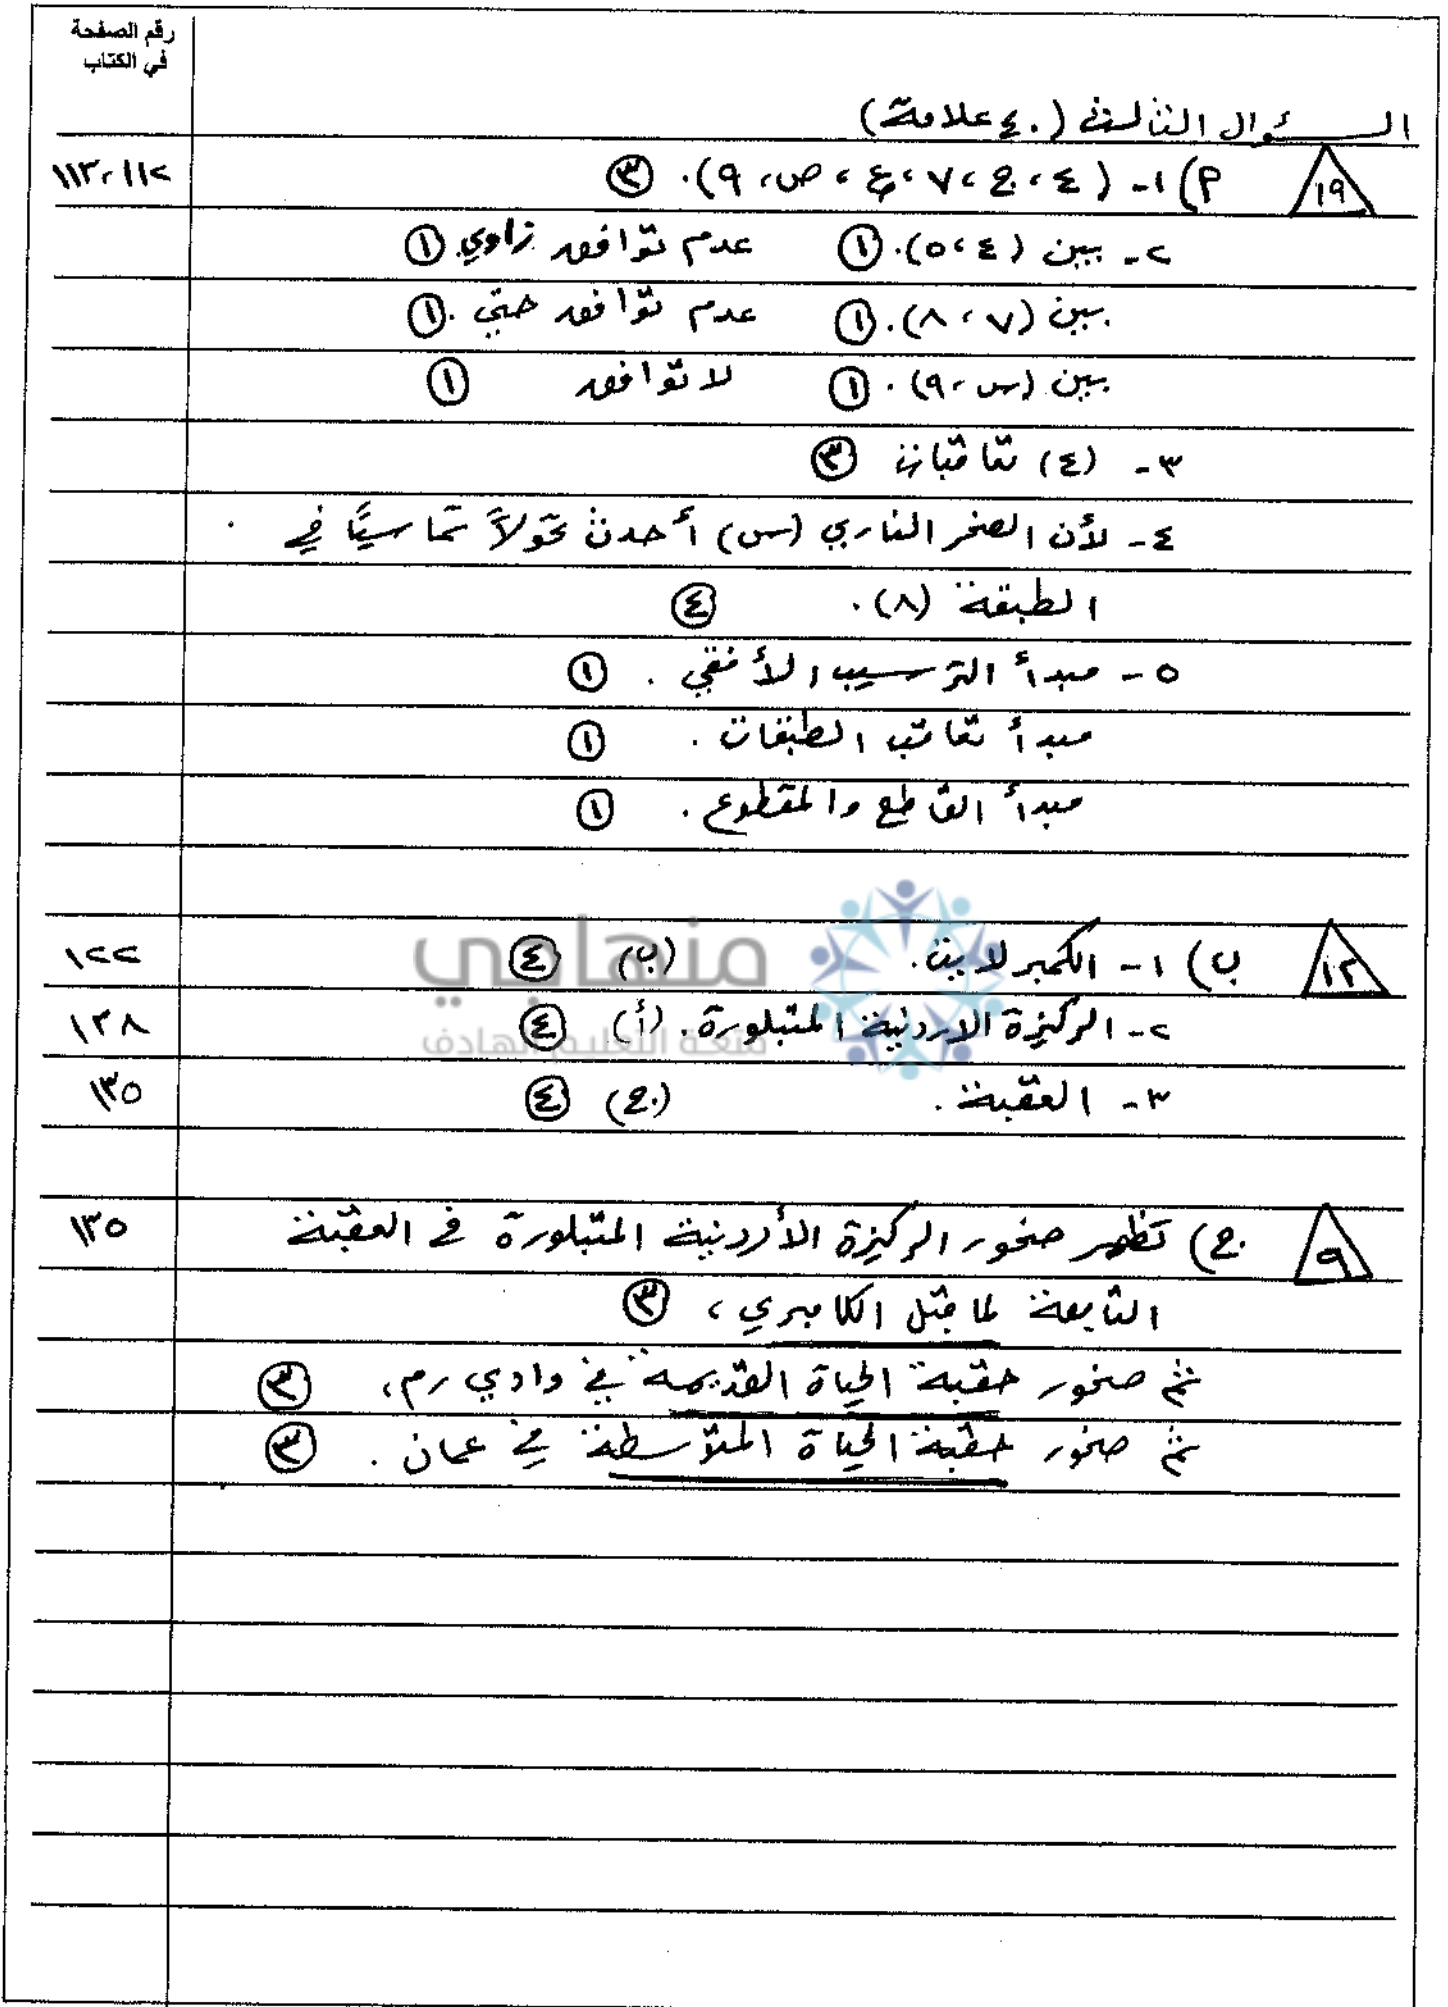 رقم الصفحة
في الكتاب
السؤال الثالث (٤٠ علامة)
١٩ أ) ١- (٤، ج، ٧، ع، ص، ٩). ٣ ١١٢، ١١٣
٢- بين (٤، ٥). ١ عدم توافق زاوي ١
بين (٧، ٨). ١ عدم توافق حتي. ١
بين (س، ٩). ١ لا توافق ١
٣- (٤) تعاقبات ٣
٤- لأن الصخر الناري (س) أحدث تحولاً تماسيًا في
الطبقة (٨). ٤
٥- مبدأ الترسيب الأفقي. ١
مبدأ تعاقب الطبقات. ١
مبدأ القاطع والمقطوع. ١
١٢ ب) ١- الكمبرلايت. (ب) ٤ ١٢٢
٢- الركيزة الاردنية المتبلورة. (أ) ٤ ١٣٨
٣- العقبة. (ج) ٤ ١٣٥
منهاجي
متعة التعليم الهادف
٩ ج) تظهر صخور الركيزة الأردنية المتبلورة في العقبة ١٣٥
التابعة لما قبل الكامبري، ٣
ثم صخور حقبة الحياة القديمة في وادي رم، ٣
ثم صخور حقبة الحياة المتوسطة في عمان. ٣